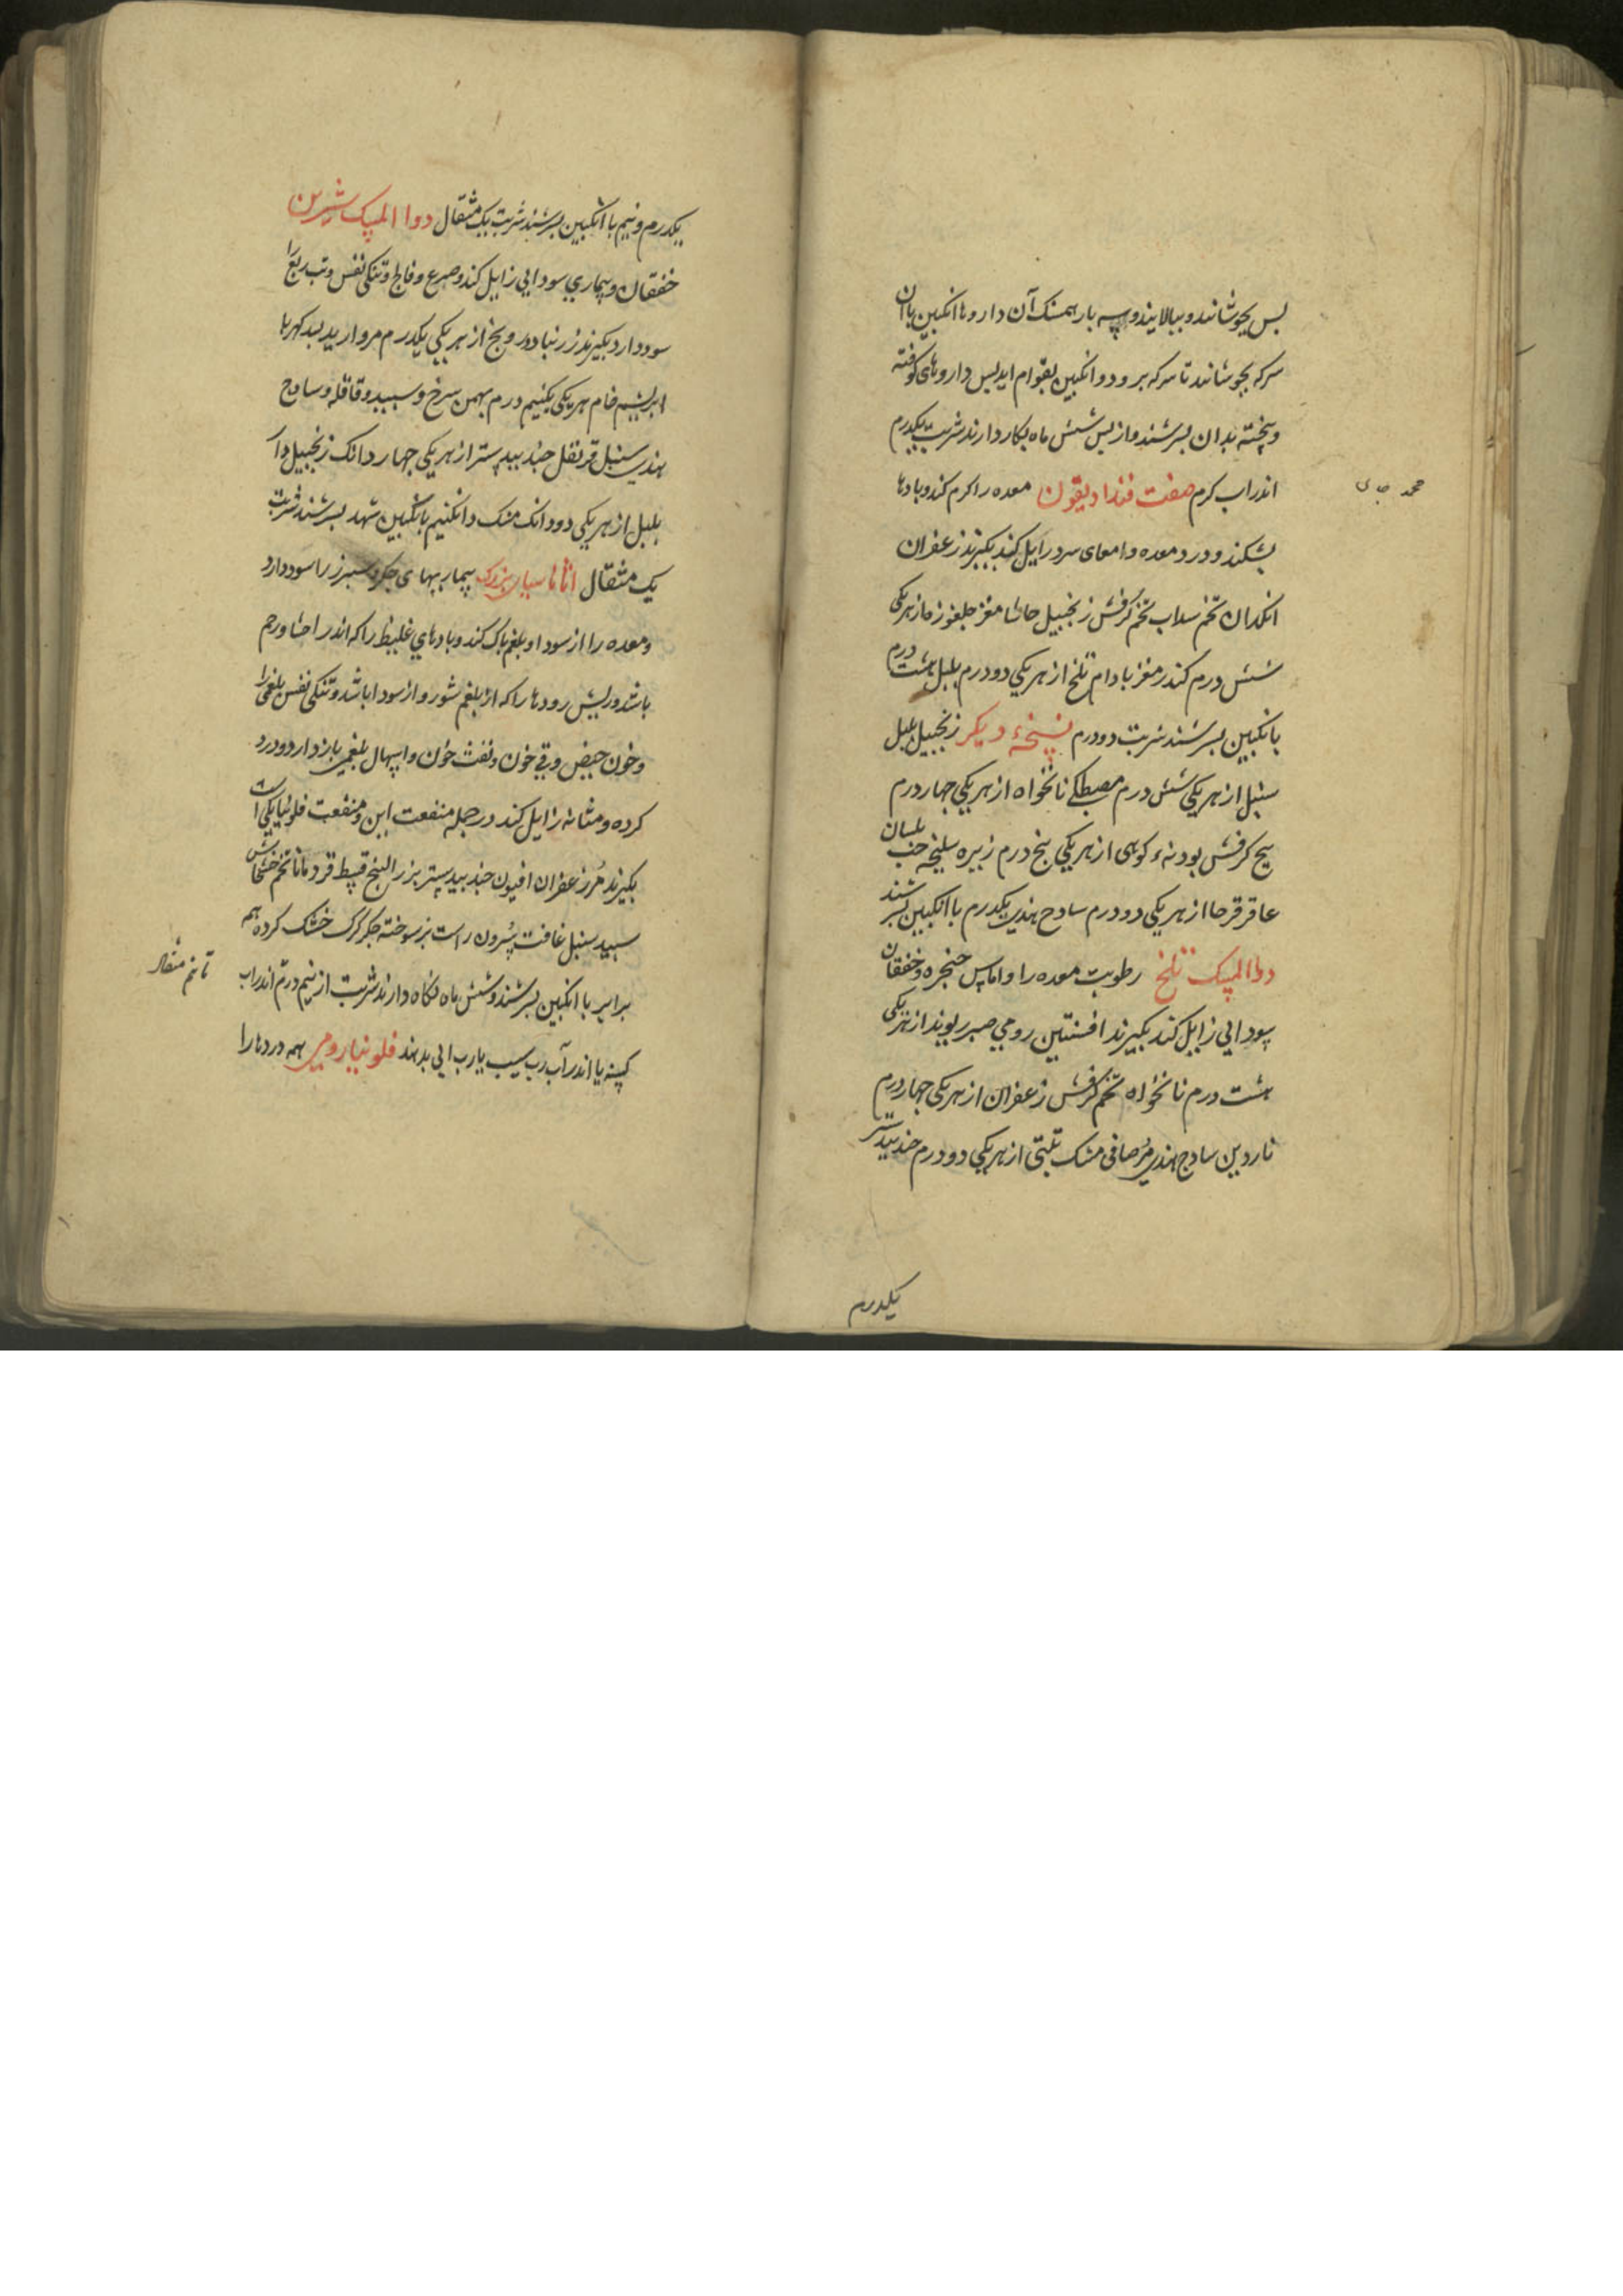 بس بجوشانند و ببالایند و سه بار همسنک آن داروها انکبین باآن
سرکه بجوشانند تا سرکه برود و انکبین بقوام اید بس داروهای کوفته
و بیخته بدان بسرشند و از بس شش ماه بکار دارند شربت یکدرم
اندر اب کرم صفت فنداديقون معده را کرم کند و بادها
بشکند و درد معده و امعای سرد زایل کند بکیرند زعفران
انکدان تخم سداب تخم کرفش زنجبیل حاشا مغز جلغوزه از هر یکی
شش درم کندر مغز بادام تلخ از هر یکی دو درم بلبل هشت درم
بانکبین بسرشند شربت دو درم نسخهٔ دیکر زنجبیل بلبل
سنبل از هر یکی شش درم مصطکی نانخواه از هر یکی چهار درم
بیخ کرفش بودنهٔ کوهی از هر یکی بنج درم زیره سلیخه حب بلسان
عاقرقرحا از هر یکی دو درم سادج هندی یکدرم با انکبین بسرشند
دوا المسک تلخ رطوبت معده را و اماس حنجره و خفقان
سودایی زایل کند بکیرند افسنتین رومی صبر ریوند از هر یکی
هشت درم نانخواه تخم کرفش زعفران از هر یکی چهار درم
ناردین سادج هندی مُر صافی مشک تبتی از هر یکی دو درم جندبیدستر
یکدرم
یکدرم و نیم با انکبین بسرشند شربت یک مثقال دوا المسک شیرین
خفقان و بیماری سودایی زایل کند و صرع و فالج و تنکی نفس و تب ربع را
سود دارد بکیرند زرنباد درونج از هر یکی یکدرم مروارید بسد کهربا
ابریشم خام هر یکی یکنیم درم بهمن سرخ و سبید و قاقله و سادج
هندی سنبل قرنفل جندبیدستر از هر یکی چهار دانک زنجبیل دار
بلبل از هر یکی دو دانک مشک دانکنیم بانکبین شهد بسرشند شربت
یک مثقال اثاناسیای بزرک بیماریهای جکر و سبرز را سود دارد
و معده را از سودا و بلغم باک کند و بادهای غلیظ را که اندر احشا و رحم
باشد و ریش رودها را که از بلغم شور و از سودا باشد و تنکی نفس بلغمی را
و خون حیض و قی خون و نفث خون و اسهال بلغمی باز دارد و درد
کرده و مثانه زایل کند در جمله منفعت این و منفعت فلونیا یکی است
بکیرند مُر زعفران افیون جندبیدستر بزر البنج قسط قردمانا تخم خشخاش
سبید سنبل غافت سُرون راست بز سوخته جکر کرک خشک کرده همه
برابر با انکبین بسرشند و شش ماه نکاه دارند شربت از نیم درم اندر اب
تا نیم مثقال
کسنه یا اندر آب رب سیب یا رب ابی بدهند فلونیا رومی همه دردها را